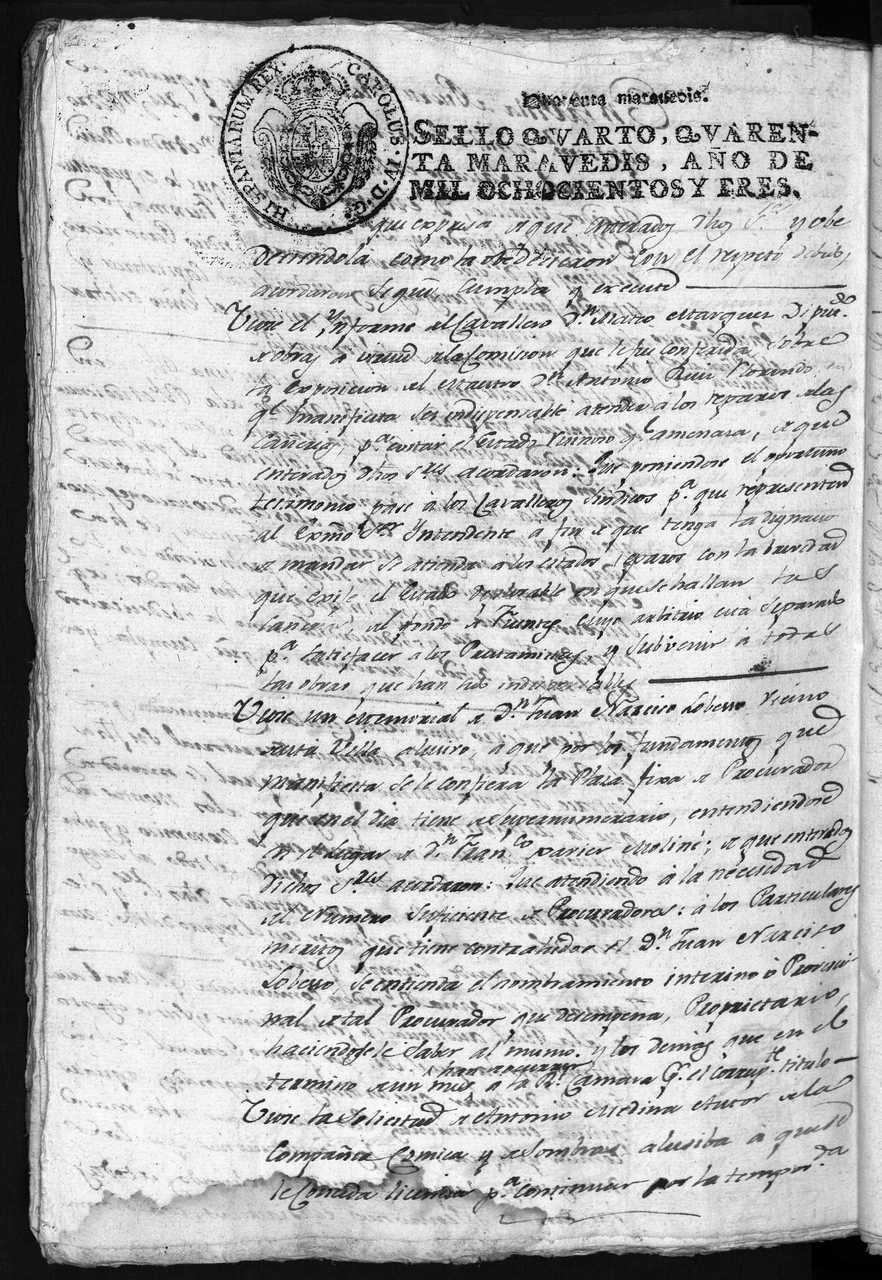 HISPANIARUM REX. CAROLUS. IV. D. G.
Quarenta maravedis.
SELLO QVARTO, QVAREN-
TA MARAVEDIS, AÑO DE
MIL OCHOCIENTOS Y TRES.
que expresa, de que enterados dhos Sres y obe
deciendola como la obedecieron con el respeto debido,
acordaron se gude cumpla y execute
Viose el Informe del Cavallero Dn. Mateo Marquez Dipudo
de obras a virtud de la Comision que le fue conferida, sobre
la exposicion del Maestro Dn. Antonio Ruiz Florindo, en
qe. manifiesta ser indispensable atender á los reparos de las
Cañerias, pa. evitar el estado ruinoso qe. amenaza, de que
enterados dhos Sres acordaron: Que poniendose el oportuno
testimonio pase á los Cavalleros Sindicos pa. que representen
al Exmo. Sor. Yntendente á fin de que tenga la dignacion
de mandar se atienda a los citados reparos con la brevedad
que exije el estado deplorable en que se hallan las
Cañerias, del fondo de Fuentes cuyo arbitrio está separado
pa. satisfacer á los Prestamistas, y subvenir a todas
las obras que han sido indispensables
Viose un Memorial de Dn. Juan Narciso Lobeso Vecino
de esta Villa, de que por los fundamentos que
manifiesta se le confiera la Plaza fixa de Procurador
que en el dia tiene de supernumerario, entendiendose
en el lugar de Dn. Franco. xavier Moliné; de que enterados
dichos Sres acordaron: Que atendiendo á la necesidad
del Numero suficiente de Procuradores: á los Particulares
meritos que tiene contrahidos el Dn. Juan Narciso
Lobeso, se entienda el nombramiento interino ó Provisio
nal de tal Procurador que desempeña, Proprietario,
haciendosele saber al mismo. y los demás que en el
termino de un mes han de ocurrir a la Rl. Camara Pr. el correspte. titulo
Viose la Solicitud de Antonio Medina Autor de la
Compañia Comica y de Sombras alusiba á que se
le Conceda licencia pa. continuar por la temporada